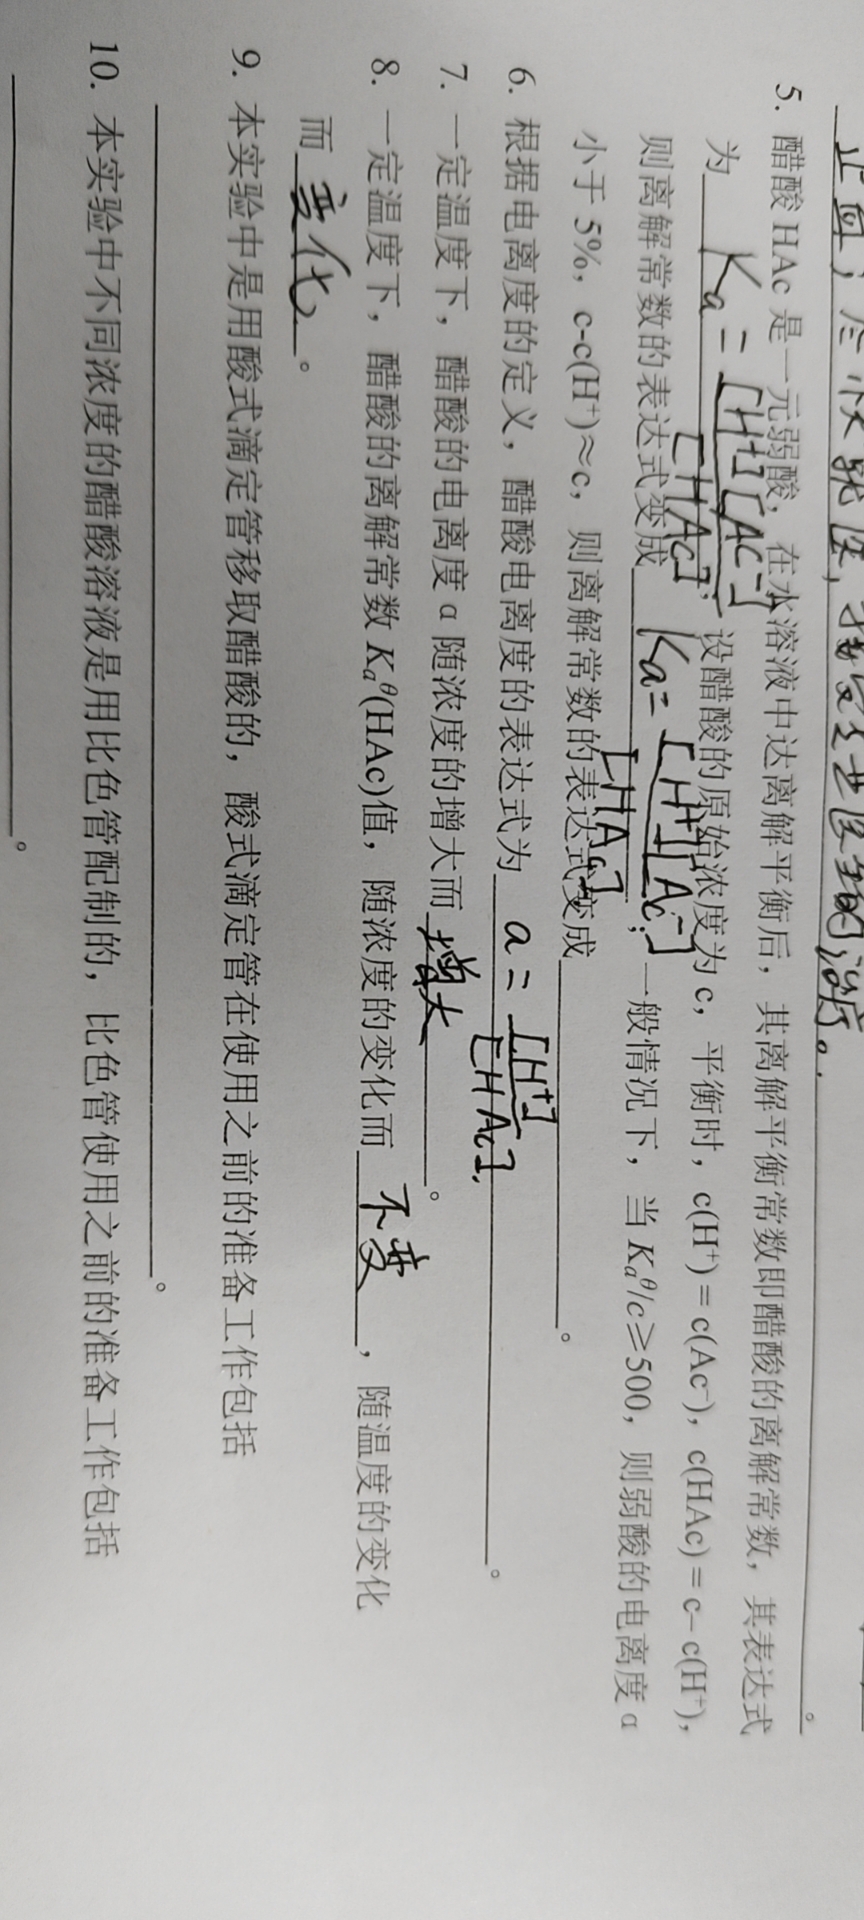 止血；尽快就医，接受医生的治疗。
5. 醋酸 HAc 是一元弱酸，在水溶液中达离解平衡后，其离解平衡常数即醋酸的离解常数，其表达式
为 Ka = [H+][Ac-] / [HAc]；设醋酸的原始浓度为 c，平衡时，c(H⁺) = c(Ac⁻)，c(HAc) = c– c(H⁺)，
则离解常数的表达式变成 Ka = [H+][Ac-] / [HAc]；一般情况下，当 Kaθ/c≥500，则弱酸的电离度 α
小于 5%，c-c(H⁺)≈c，则离解常数的表达式变成 。
6. 根据电离度的定义，醋酸电离度的表达式为 a = [H+] / [HAc] 。
7. 一定温度下，醋酸的电离度 α 随浓度的增大而 增大 。
8. 一定温度下，醋酸的离解常数 Kaθ(HAc)值，随浓度的变化而 不变 ，随温度的变化
而 变化 。
9. 本实验中是用酸式滴定管移取醋酸的，酸式滴定管在使用之前的准备工作包括
。
10. 本实验中不同浓度的醋酸溶液是用比色管配制的，比色管使用之前的准备工作包括
。